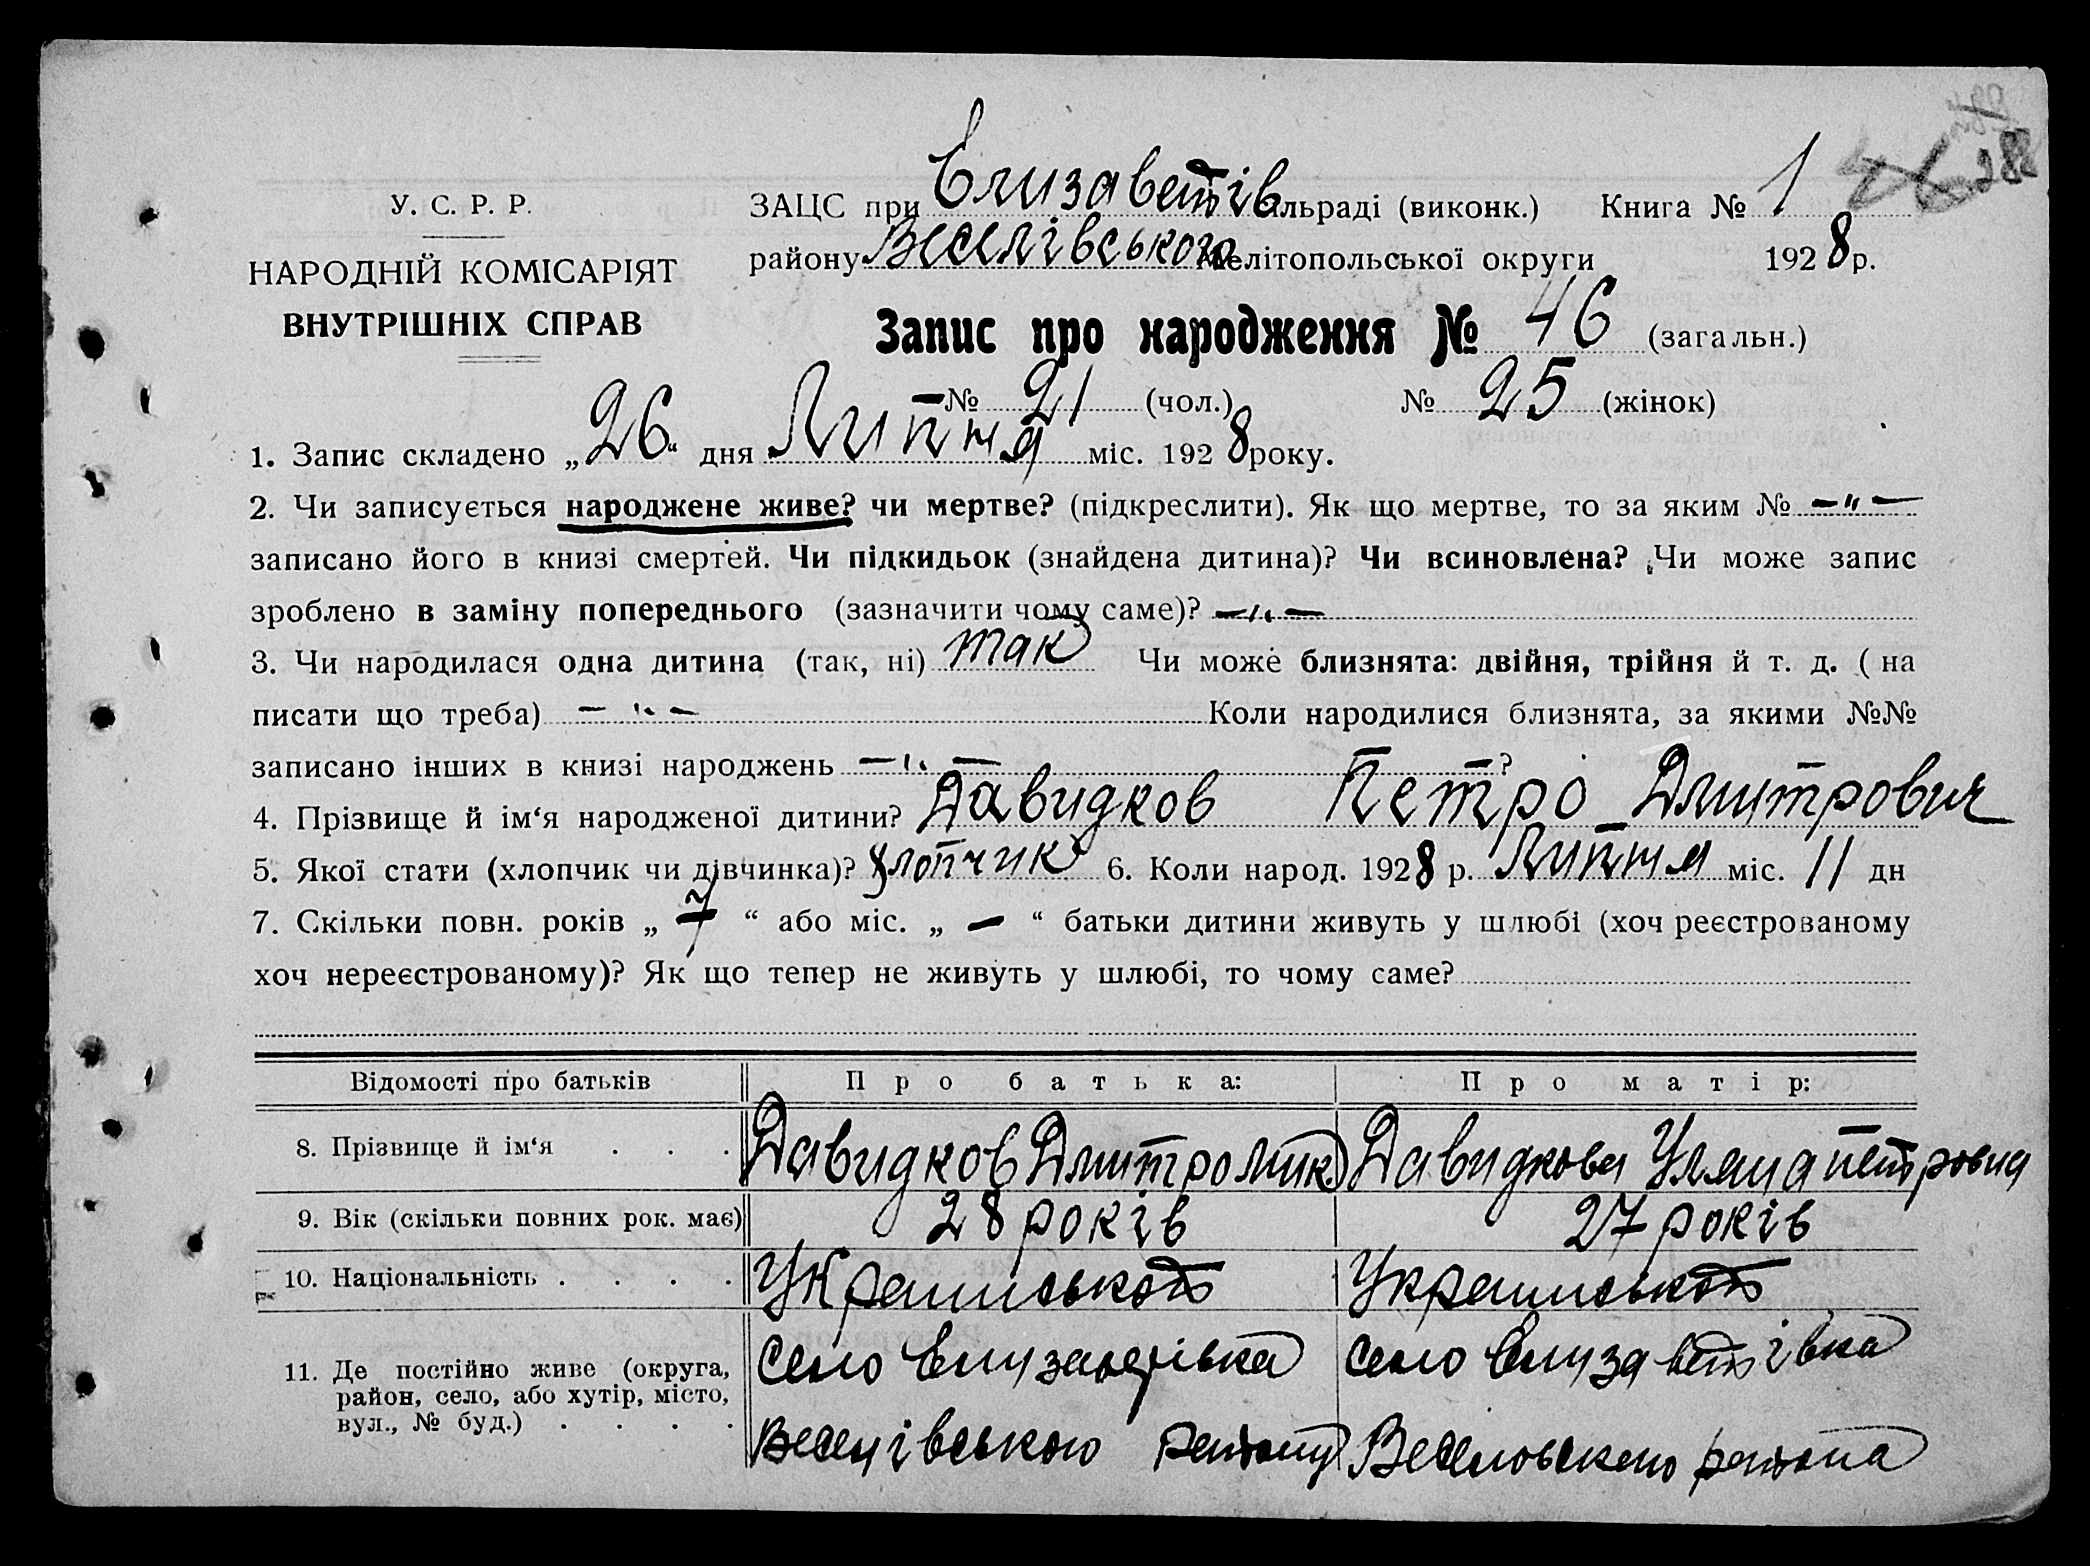 У. С. Р. Р.
НАРОДНІЙ КОМІСАРІЯТ
ВНУТРІШНІХ СПРАВ
ЗАЦС при Єлизаветів сільраді (виконк.) Книга № 1
району Веселівського Мелітопольської округи 1928 р.
Запис про народження № 46 (загальн.)
№ 21 (чол.) № 25 (жінок)
1. Запис складено „26“ дня Липня міс. 1928 року.
2. Чи записується народжене живе? чи мертве? (підкреслити). Як що мертве, то за яким № —„—
записано його в книзі смертей. Чи підкидьок (знайдена дитина)? Чи всиновлена? Чи може запис
зроблено в заміну попереднього (зазначити чому саме)? —„—
3. Чи народилася одна дитина (так, ні) так Чи може близнята: двійня, трійня й т. д. (на
писати що треба) —„— Коли народилися близнята, за якими №№
записано інших в книзі народжень —„— ?
4. Прізвище й ім‘я народженої дитини? Давидков Петро Дмитрович
5. Якої стати (хлопчик чи дівчинка)? хлопчик 6. Коли народ. 1928 р. Липня міс. 11 дн
7. Скільки повн. років „ 7 “ або міс. „ — “ батьки дитини живуть у шлюбі (хоч реєстрованому
хоч нереєстрованому)? Як що тепер не живуть у шлюбі, то чому саме?
Відомості про батьків Про батька: Про матір:
8. Прізвище й ім‘я . . . Давидков Дмитро Мик Давидкова Уляна Петровна
9. Вік (скільки повних рок. має) 28 років 27 років
10. Національність . . . .
11. Де постійно живе (округа, район, село, або хутір, місто, вул., № буд.) . . . .
село Елизаветівка село Елизаветівка
Веселівського району Веселовского района